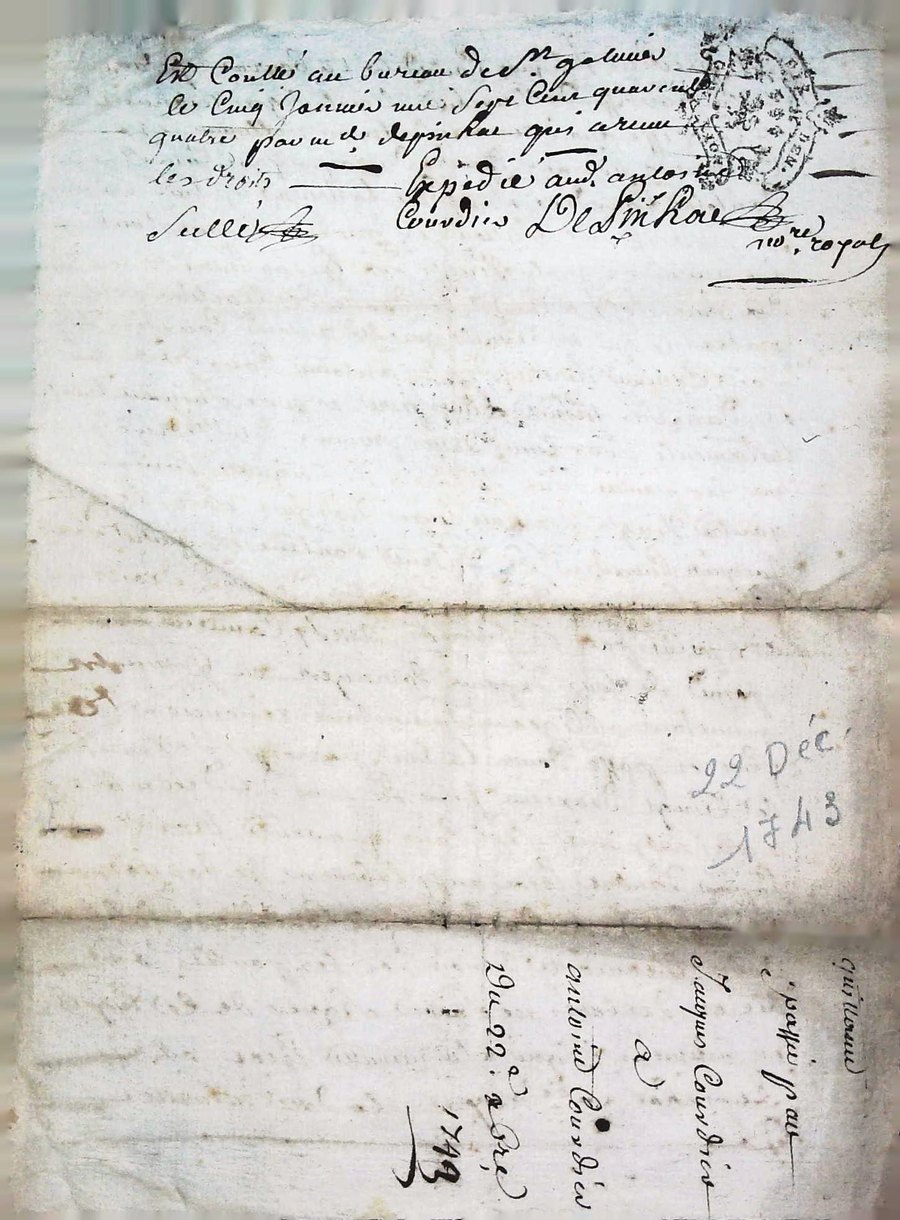 Est Contlé au bureau de St galmier
le Cinq Janvier mil Sept Cent quarente
quatre par md depinhac qui a receu
les droits Expedié aud. antoine
Courdier DePinhac
Scellé
nore. royal
22 Déc.
1743
quittance
passée par
Jacques Courdier
a
antoine Courdier
Du 22e xbre
1743